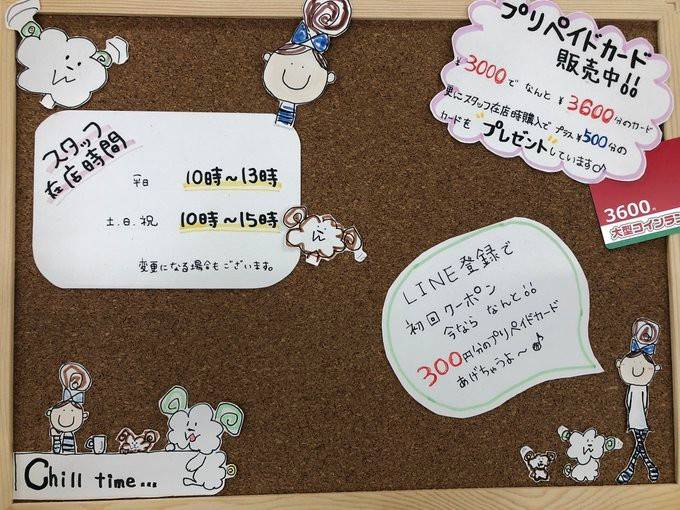 プリペイドカード
販売中!!
¥3000で なんと ¥3600分のカード
更にスタッフ在店時購入で プラス¥500分の
カードを "プレゼント"しています♪
スタッフ
在店時間
平日 10時～13時
土.日.祝 10時～15時
変更になる場合もございます。
3600
大型コインラ
LINE登録で
初回クーポン
今なら なんと!!
300円分のプリペイドカード
あげちゃうよ〜♪
Chill time...